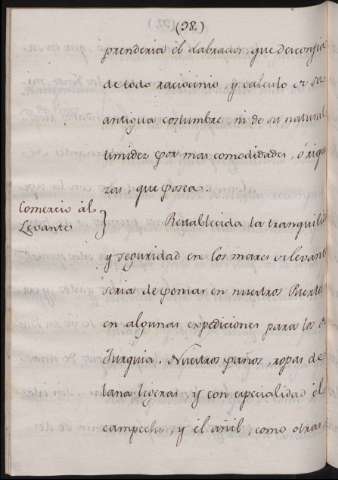 (98.)
prenderia el labrador, que desconfia
de todo raciocinio, y calculo
antigua costumbre, ni de su natural
timidez por mas comodidades, ó rique
zas, que posea.
Comercio al
Levante
Restablecida la tranquili
y seguridad en los mares
seria de pensar en nuestros
en algunas expediciones para los
Turquia. Nuestros paños, ropas de
lana ligeras, y con especialidad el
campeche, y el añil, como otras